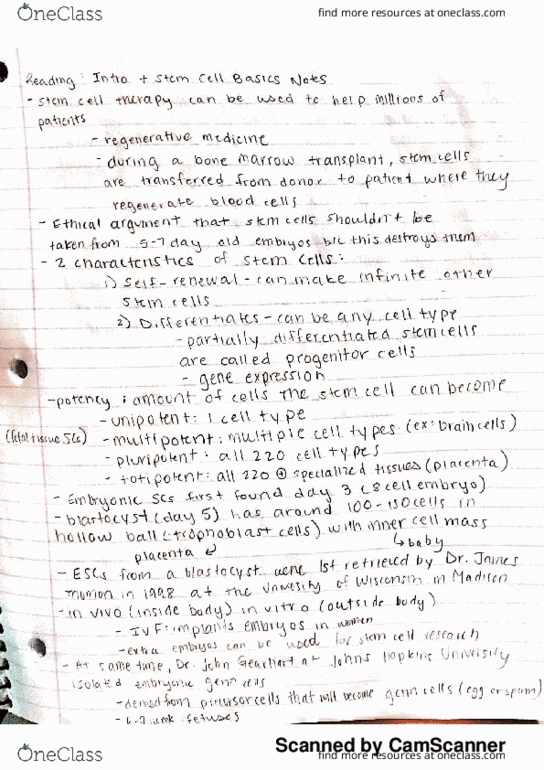 OneClass
find more resources at oneclass.com
Reading: Intro + Stem Cell Basics Notes
- stem cell therapy can be used to help millions of
patients
- regenerative medicine
- during a bone marrow transplant, stem cells
are transferred from donor to patient where they
regenerate blood cells
- Ethical argument that stem cells shouldn't be
taken from 5-7 day old embryos b/c this destroys them
- 2 characteristics of stem cells:
1) Self-renewal - can make infinite other
stem cells
2) Differentiates - can be any cell type
- partially differentiated stem cells
are called progenitor cells
- gene expression
- potency: amount of cells the stem cell can become
- unipotent: 1 cell type
(fetal tissue SCs) - multipotent: multiple cell types (ex: brain cells)
- pluripotent: all 220 cell types
- totipotent: all 220 + specialized tissues (placenta)
- Embryonic SCs first found day 3 (8 cell embryo)
- blastocyst (day 5) has around 100-150 cells in
hollow ball (trophoblast cells) with inner cell mass
placenta ↙ ↳ baby
- ESCs from a blastocyst were 1st retrieved by Dr. James
in 1998 at the University of Wisconsin in Madison
- in vivo (inside body) in vitro (outside body)
- IVF: implants embryos in women
- extra embryos can be used for stem cell research
- At same time, Dr. John Gearhart at Johns Hopkins University
isolated embryonic germ cells
- derived from precursor cells that will become germ cells (egg or sperm)
- week fetuses
Scanned by CamScanner
OneClass
find more resources at oneclass.com